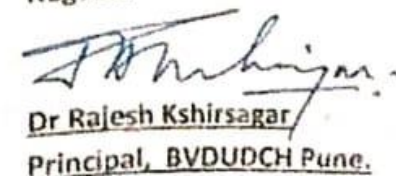 Dr Rajesh Kshirsagar
Principal, BVDUDCH Pune.